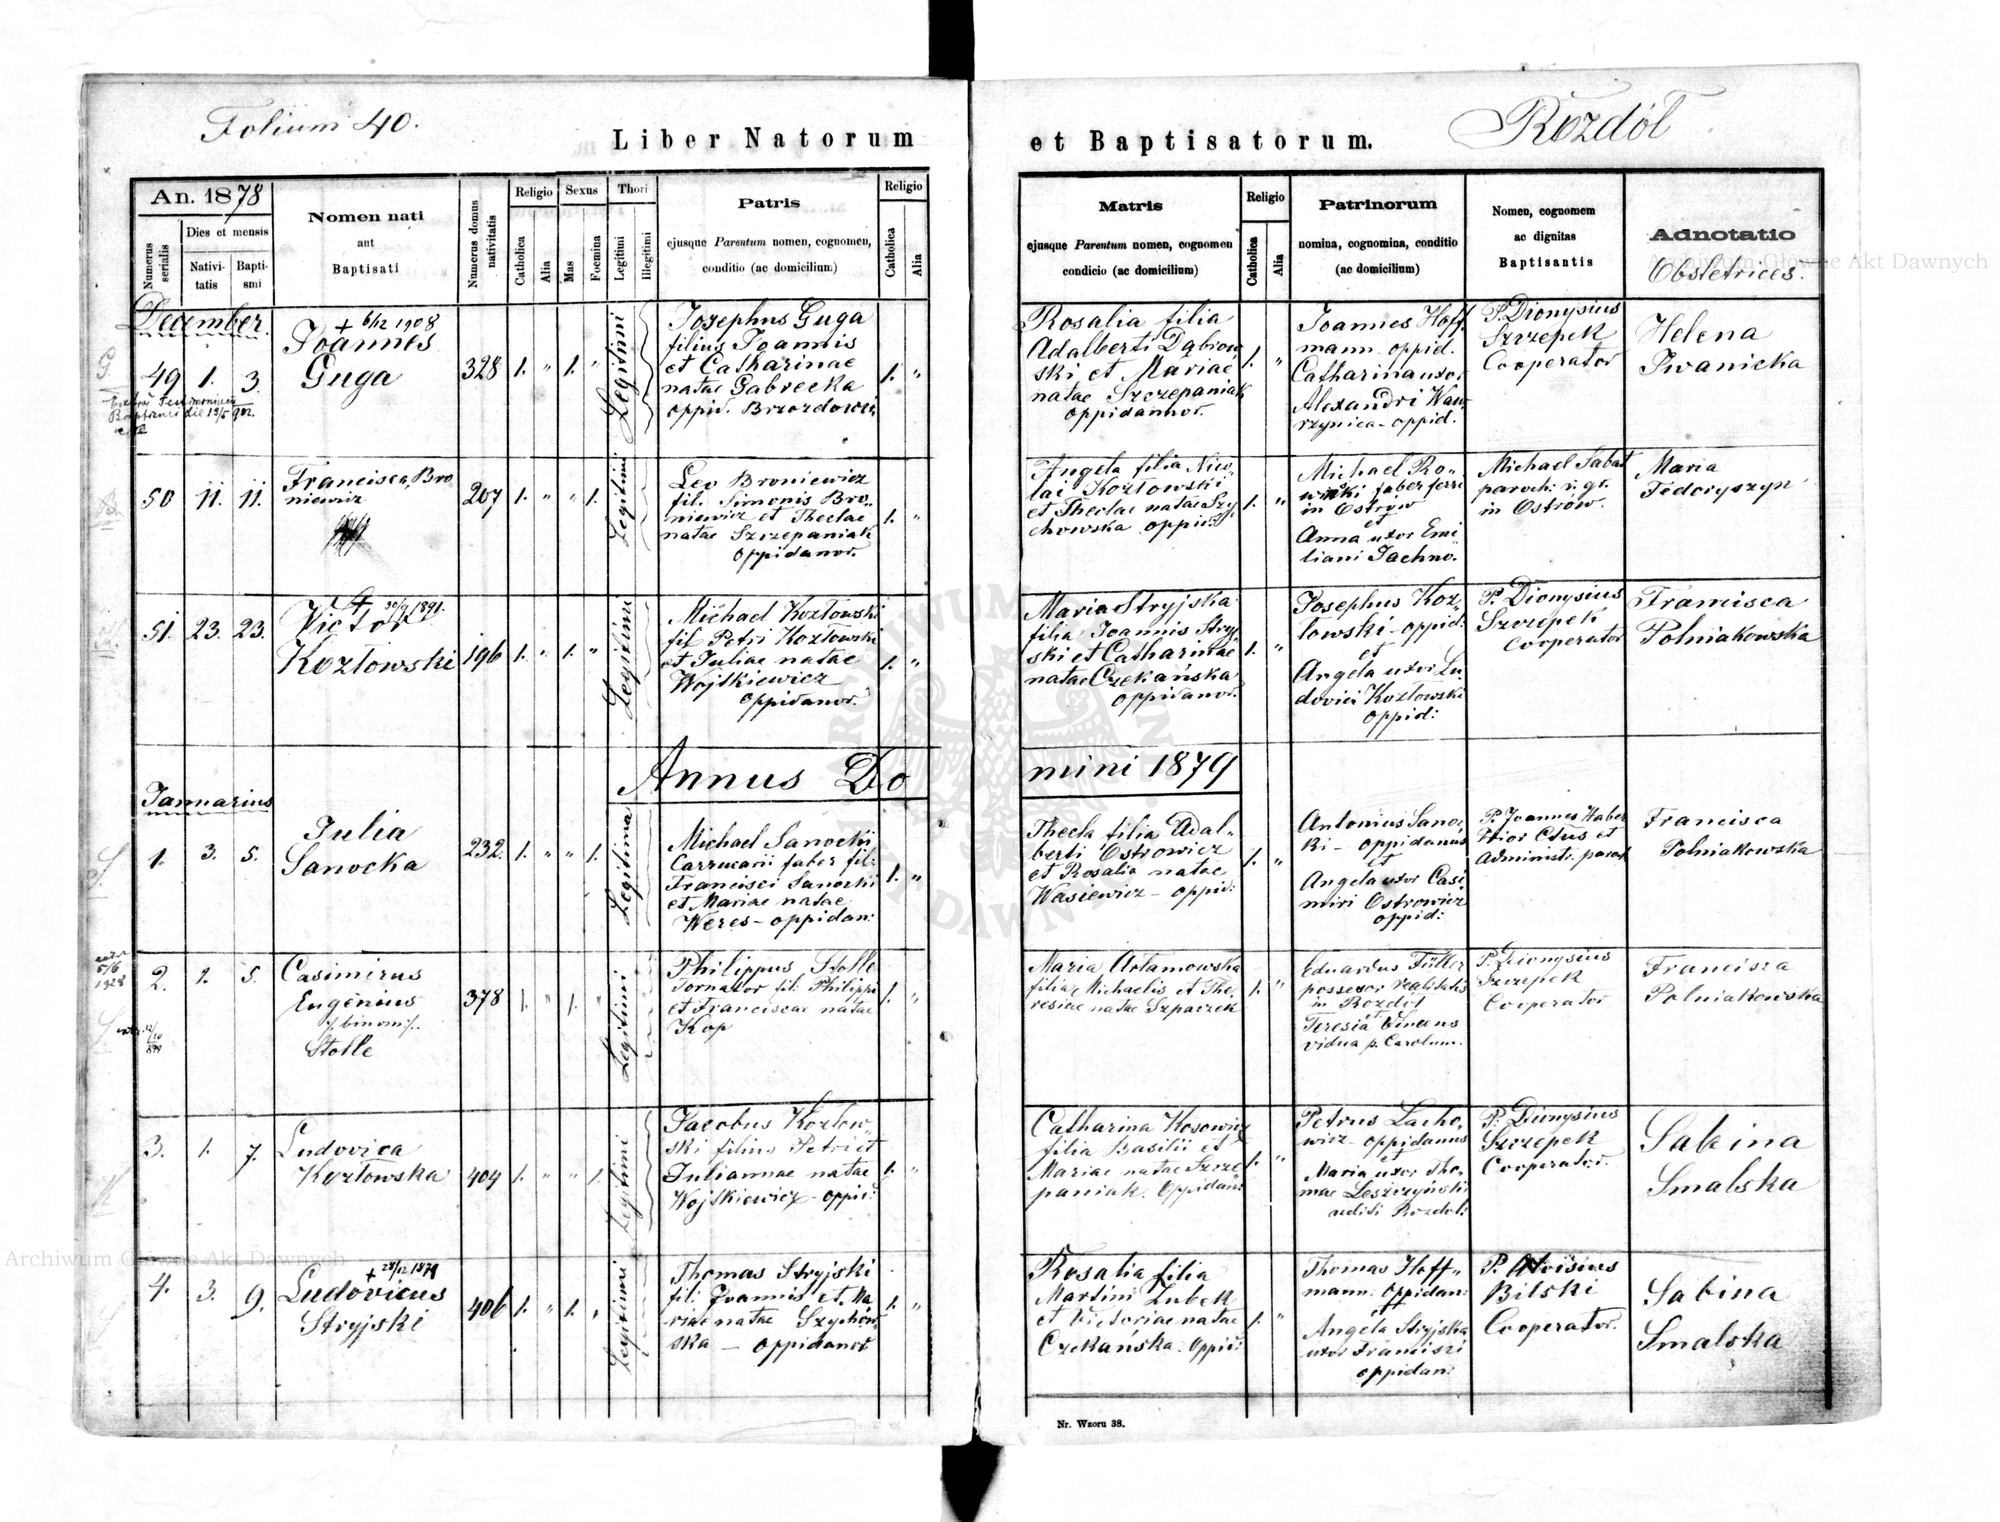 Folium 40.
Rozdół
Liber Natorum
et Baptisatorum.
An. 1878
Numerus serialis
Dies et mensis
Nativi-
tatis
Bapti-
smi
Nomen nati
aut
Baptisati
Numerus domus
nativitatis
Religio
Catholica
Alia
Sexus
Mas
Foemina
Thori
Legitimi
Illegitimi
Patris
ejusque Parentum nomen, cognomen,
conditio (ac domicilium)
Religio
Catholica
Alia
Matris
ejusque Parentum nomen, cognomen
condicio (ac domicilium)
Religio
Catholica
Alia
Patrinorum
nomina, cognomina, conditio
(ac domicilium)
Nomen, cognomem
ac dignitas
Baptisantis
Adnotatio
Obstetrices.
December.
49 1. 3.
+ 6/12 1908
Joannes
Guga
328 1. " 1. "
Legitimi
Josephus Guga
filius Joannis
et Catharinae
natae Gabrecka
oppid. Brzozdowi
1. "
Rosalia filia
Adalberti Dąbrow
ski et Mariae
natae Szczepaniak
oppidanor.
1. "
Joannes Hoff
mann oppid.
Catharina uxor
Alexandri Waw
rzynica - oppid.
P. Dionysius
Szczepek
Cooperator
Helena
Iwanicka
50 11. 11.
Francisca Bro
niewicz
207 1. " " 1.
Legitimi
Leo Broniewicz
fil. Simonis Bro-
niewicz et Theclae
natae Szczepaniak
oppidanor.
1. "
Angela filia Nico
lai Kozłowski
et Theclae natae Szy
chowska oppid.
1. "
Michael Ro-
wski faber ferri
in Ostrów
et
Anna uxor Emi
liani Jachno.
Michael Sabat
paroch: r. gr.
in Ostrów.
Maria
Fedoryszyn
51. 23. 23.
+ 30/9 1891.
Victor
Kozłowski
196 1. " 1. "
Legitimi
Michael Kozłowski
fil Petri Kozłowski
et Juliae natae
Wojtkiewicz
oppidanor.
1. "
Maria Stryjska
filia Joannis Stryj
ski et Catharinae
natae Czekańska
oppidanor.
1. "
Josephus Koz-
łowski - oppid:
et
Angela uxor Lu
dovici Kozłowski
oppid:
P. Dionysius
Szczepek
Cooperator
Francisca
Polniakowska
Annus Domini 1879
Januarius
1. 3. 5.
Julia
Sanocka
232. 1. " " 1.
Legitima
Michael Sanocki
Carrucarii faber fil:
Francisci Sanocki
et Mariae natae
Weres - oppidan:
1. "
Thecla filia Adal-
berti Ostrowicz
et Rosalia natae
Wasiewicz - oppid:
1. "
Antonius Sanoc
ki - oppidanus
et
Angela uxor Casi
miri Ostrowicz
oppid:
P. Joannes Haber
Prior Ctus et
Administr. paroch
Francisca
Polniakowska
2. 1. 5.
Casimirus
Eugenius
/. binom /.
Stolle
378 1. " 1. "
Legitimi
Philippus Stolle
Tornator fil. Philippi
et Franciscae natae
Kop
1. "
Maria Artamowska
filia Michaelis et The
resiae natae Szpaczek
1. "
Eduardus Füller
possesor realitatis
in Rozdół
et
Teresia Vincens
vidua p. Carolum.
P. Dionysius
Szczepek
Cooperator
Francisca
Polniakowska
3. 1. 7.
Ludovica
Kozłowska
404 1. " " 1.
Legitimi
Jacobus Kozłow
ski filius Petri et
Juliannae natae
Wojtkiewicz - oppid:
1. "
Catharina Kosowicz
filia Basilii et
Mariae natae Szcze
paniak. oppidan:
1. "
Petrus Lacho-
wicz - oppidanus
et
Maria uxor Tho-
mae Leszczyński
aedili Rozdol:
P. Dionysius
Szczepek
Cooperator.
Sabina
Smalska
4. 3. 9.
+ 28/12 1879
Ludovicus
Stryjski
406 1. " 1. "
Legitimi
Thomas Stryjski
fil: Joannis et Ma
riae natae Szychow
ska - oppidanor
1. "
Rosalia filia
Martini Zubek
et Victoriae natae
Czekańska. oppid:
1. "
Thomas Hoff-
mann. oppidan:
et
Angela Stryjska
uxor Francisci
oppidan:
P. Aloisius
Bilski
Cooperator.
Sabina
Smalska
Nr. Wzoru 38.
Archiwum Główne Akt Dawnych
Archiwum Główne Akt Dawnych